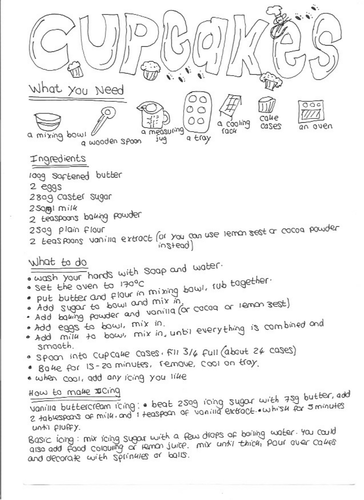 CUPCAKES
What You Need
a mixing bowl
a wooden spoon
a measuring jug
a tray
a cooling rack
cake cases
an oven
Ingredients
100g softened butter
2 eggs
280g caster sugar
250ml milk
2 teaspoons baking powder
250g plain flour
2 teaspoons vanilla extract (or you can use lemon zest or cocoa powder instead)
What to do
• wash your hands with soap and water.
• Set the oven to 170°C
• put butter and flour in mixing bowl, rub together.
• Add sugar to bowl and mix in.
• Add baking powder and vanilla (or cocoa or lemon zest)
• Add eggs to bowl, mix in.
• Add milk to bowl, mix in, until everything is combined and
smooth.
• Spoon into cupcake cases. fill 3/4 full (about 26 cases)
• Bake for 15-20 minutes. remove, cool on tray.
• when cool, add any icing you like
How to make Icing
vanilla buttercream icing: • beat 250g icing sugar with 75g butter, add
2 tablespoons of milk and 1 teaspoon of vanilla extract • whisk for 5 minutes
until fluffy.
Basic icing: mix icing sugar with a few drops of boiling water. You could
also add food colouring or lemon juice. mix until thick, pour over cakes
and decorate with sprinkles or balls.